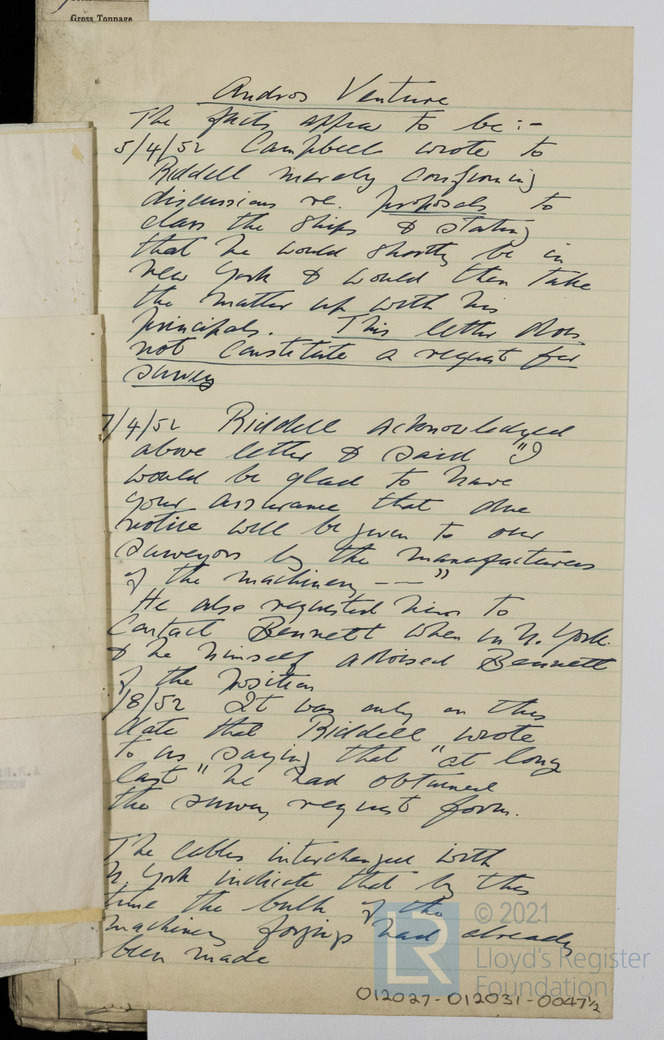 Gross Tonnage
Andros Venture
The facts appear to be:-
5/4/52 Campbell wrote to
Riddell merely confirming
discussions re. proposals to
class the ships & stating
that he would shortly be in
New York & would then take
the matter up with his
principals. This letter does
not constitute a request for
survey
7/4/52 Riddell acknowledged
above letter & said "I
would be glad to have
your assurance that due
notice will be given to our
surveyors by the manufacturers
of the machinery —— "
He also requested him to
contact Bennett when in N. York.
& he himself advised Bennett
of the position
/8/52 It was only on this
date that Riddell wrote
to us saying that "at long
last" he had obtained
the survey request form.
The cables interchanged with
N. York indicate that by this
time the bulk of the
machinery forgings had already
been made
© 2021
Lloyd's Register
Foundation
LR
012027-012031-0047½